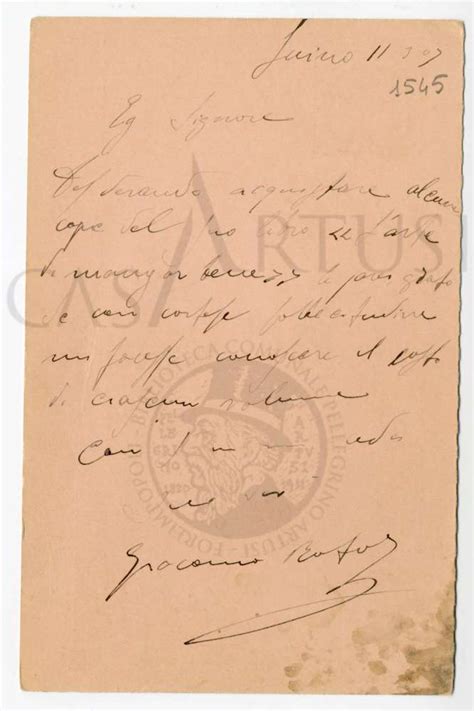 Luino 11 3 07
1545
Eg Signore
Desiderando acquistare alcune
copie del suo libro << L'arte
di mangiar bene >> le sarei grato
se con cortese sollecitudine
mi facesse conoscere il costo
di ciascun volume
Con
Giacomo
CASARTUSI
BIBLIOTECA COMUNALE PELLEGRINO ARTUSI - FORLIMPOPOLI